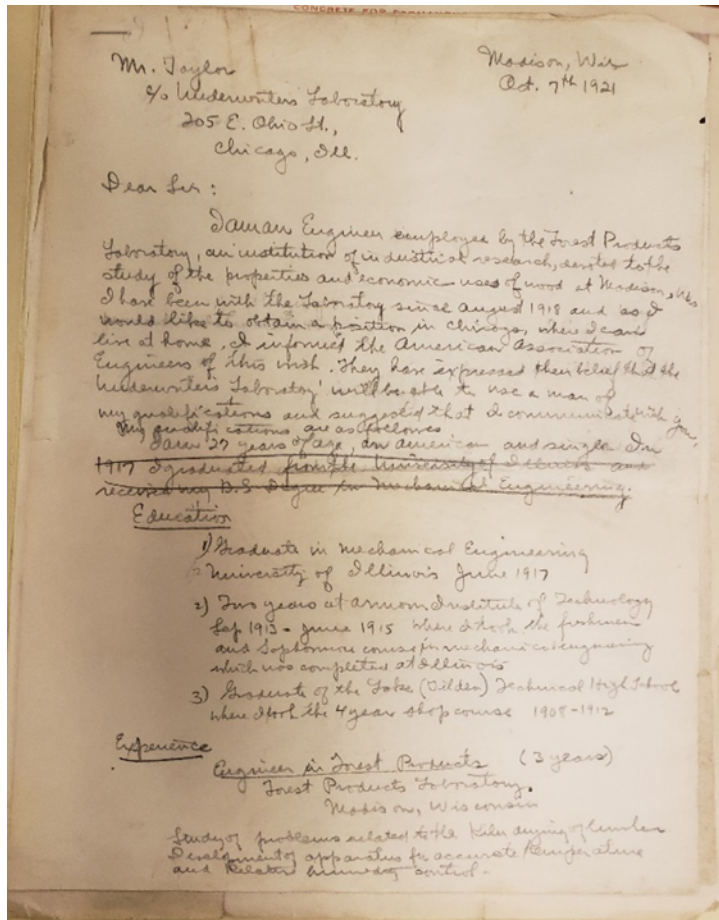 CONCRETE FOR
Mr. Taylor
c/o Underwriters Laboratory
205 E. Ohio St.,
Chicago, Ill.
Madison, Wis
Oct. 7th 1921
Dear Sir:
I am an Engineer employed by the Forest Products
Laboratory, an institution of industrial research, devoted to the
study of the properties and economic uses of wood at Madison, Wis
I have been with the Laboratory since August 1918 and as I
would like to obtain a position in Chicago, where I can
live at home, I informed the American Association of
Engineers of this wish. They have expressed their belief that the
Underwriters Laboratory will be able to use a man of
my qualifications and suggested that I communicate with you.
My qualifications are as follows
I am 27 years of age, an American and single. In
1917 I graduated from the University of Illinois and
received my B.S. Degree in Mechanical Engineering.
Education
1) Graduate in Mechanical Engineering
University of Illinois June 1917
2) Two years at Armour Institute of Technology
Sep 1913 - June 1915 where I took the freshmen
and Sophomore course in mechanical engineering
which was completed at Illinois
3) Graduate of the Lake (Tilden) Technical High School
where I took the 4 year shop course 1908-1912
Experience
Engineer in Forest Products (3 years)
Forest Products Laboratory,
Madison, Wisconsin
Study of problems related to the Kiln drying of lumber
Development of apparatus for accurate temperature
and Relative humidity control.